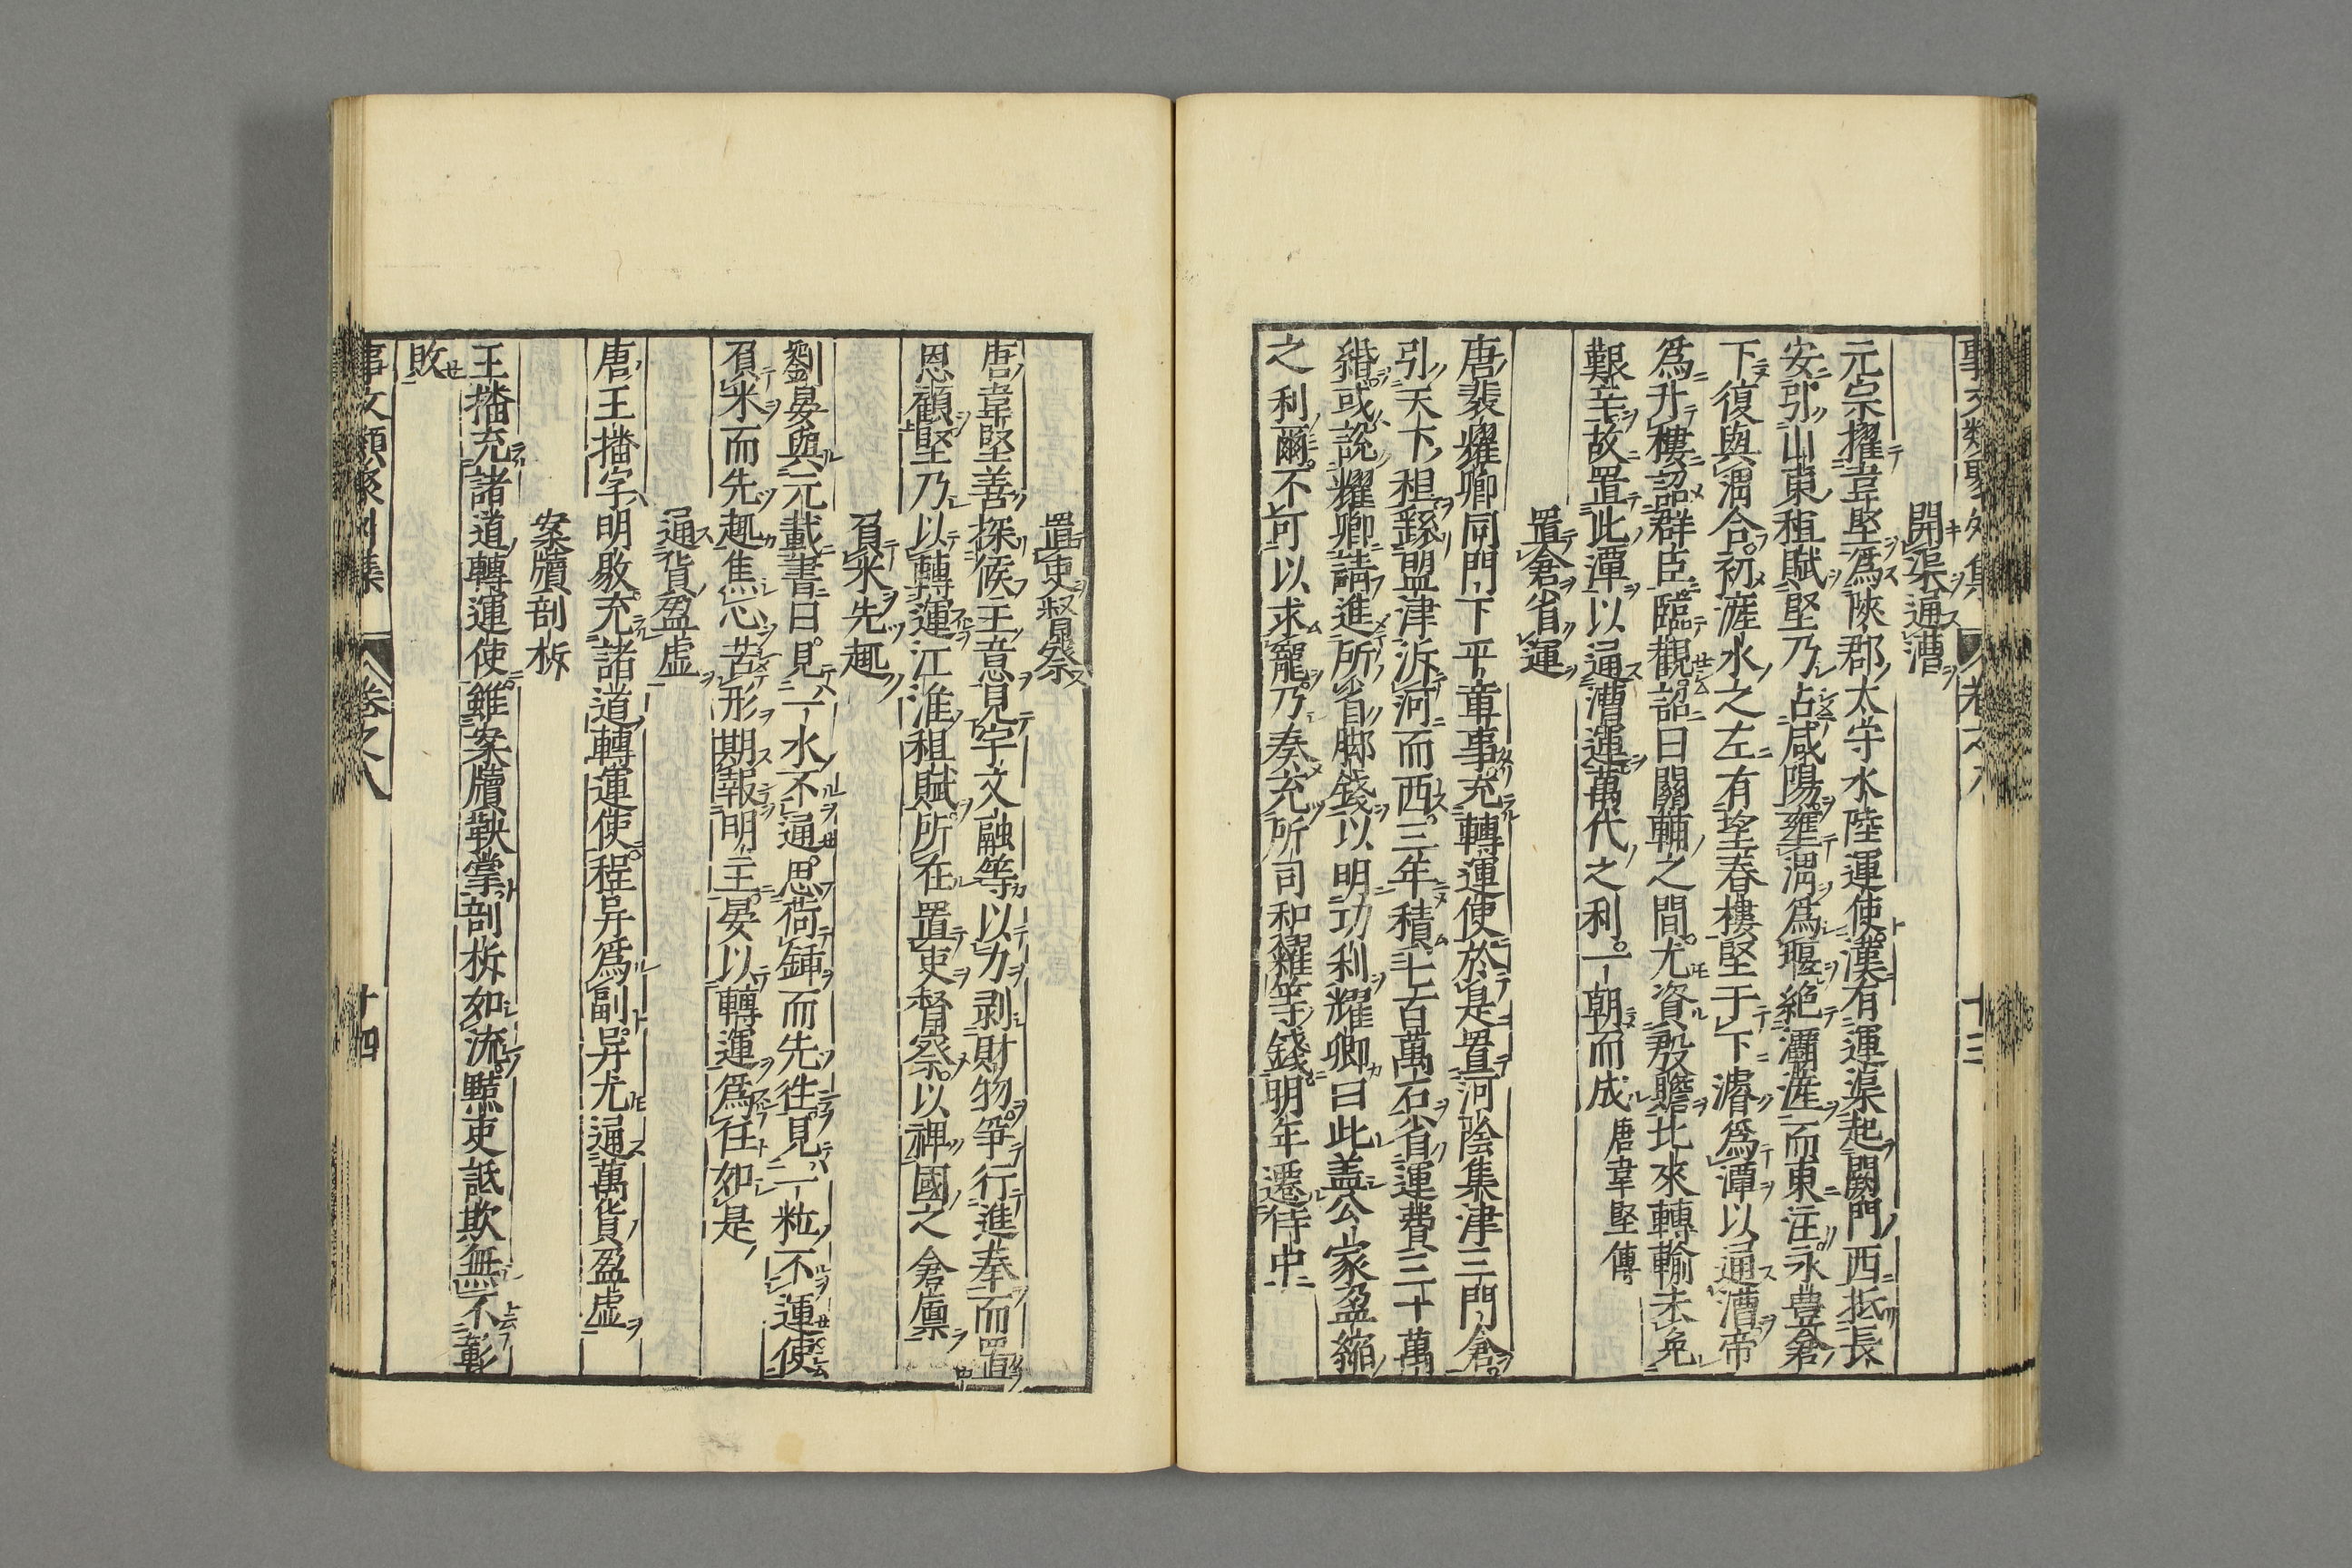 開渠通漕
元宗擢韋堅爲陝郡太守水陸運使漢有運渠起闕門西抵長
安引山東租賦堅乃占咸陽壅渭爲堰絕灞滻而東注永豊倉
下復與渭合初滻水之左有望春樓堅于下濬爲潭以通漕帝
爲升樓詔群臣臨觀詔曰關輔之間尤資殷贍比來轉輸未免
艱辛故置此潭以通漕運萬代之利一朝而成 唐韋堅傳
置倉省運
唐裴耀卿同門下平章事充轉運使於是置河陰集津三門倉
引天下租繇盟津泝河而西三年積七百萬石省運費三十萬
緡或說耀卿請進所省脚錢以明功利耀卿曰此盖公家盈縮
之利爾不可以求寵乃奏充所司和糴等錢明年遷侍中
置吏督察
唐韋堅善探候主意見宇文融等以力剥財物爭行進奉而置
恩顧堅乃以轉運江淮租賦所在置吏督察以裨國之倉廪
負米先趣
劉晏與元載書曰見一水不通思荷鍤而先徃見一粒不運使
負米而先趣焦心苦形期報明主晏以轉運爲任如是
通貨盈虚
唐王播字明敭充諸道轉運使程异爲副异尤通萬貨盈虚
案牘剖析
王播充諸道轉運使雖案牘鞅掌剖析如流黠吏詆欺無不彰
敗
事文類聚別集 卷之八 十四